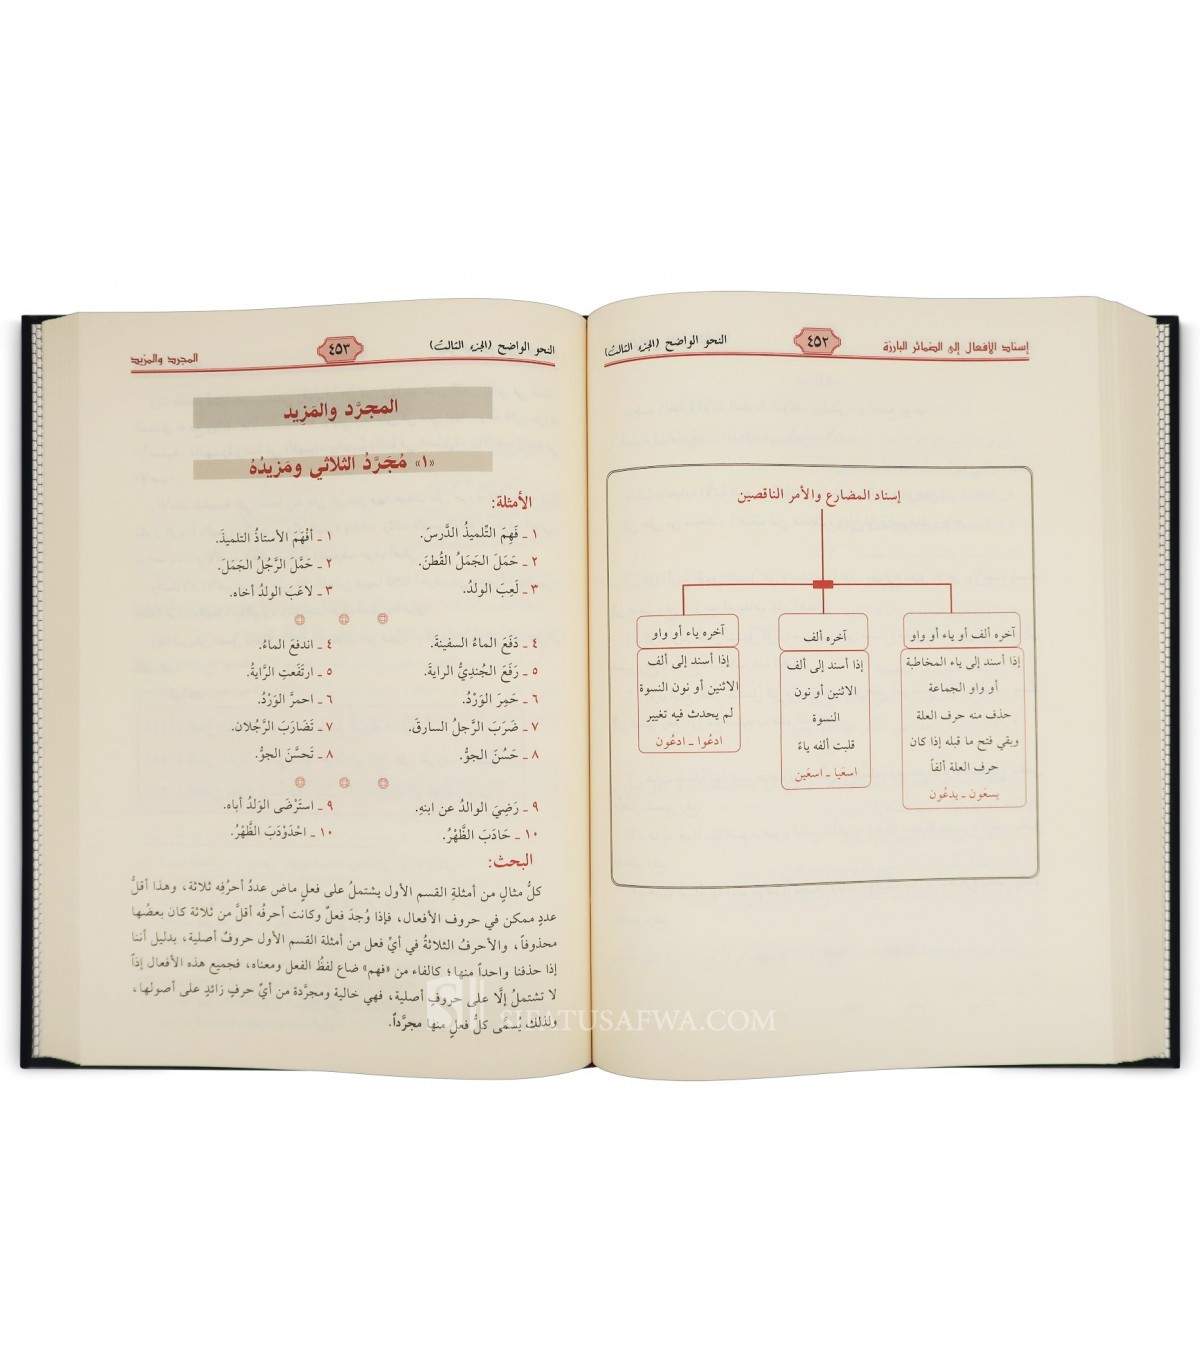 إسناد الأفعال إلى الضمائر البارزة
٤٥٢
النحو الواضح (الجزء الثالث)
إسناد المضارع والأمر الناقصين
آخره ألف أو ياء أو واو
إذا أسند إلى ياء المخاطبة
أو واو الجماعة
حذف منه حرف العلة
وبقي فتح ما قبله إذا كان
حرف العلة ألفاً
يسعَون ـ يدعُون
آخره ألف
إذا أسند إلى ألف
الاثنين أو نون
النسوة
قلبت ألفه ياءً
اسعَيا ـ اسعَين
آخره ياء أو واو
إذا أسند إلى ألف
الاثنين أو نون النسوة
لم يحدث فيه تغيير
ادعُوا ـ ادعُون
النحو الواضح (الجزء الثالث)
٤٥٣
المجرد والمزيد
المجرَّد والمَزِيد
«١» مُجَرَّدُ الثلاثي ومَزيدُهُ
الأمثلة:
١ ـ فَهِمَ التِّلميذُ الدَّرسَ.
١ ـ أفْهَمَ الأستاذُ التلميذَ.
٢ ـ حَمَلَ الجَمَلُ القُطنَ.
٢ ـ حَمَّلَ الرَّجُلُ الجَمَلَ.
٣ ـ لَعِبَ الولدُ.
٣ ـ لاعَبَ الولدُ أخاه.
٤ ـ دَفَعَ الماءُ السفينةَ.
٤ ـ اندفعَ الماءُ.
٥ ـ رَفَعَ الجُندِيُّ الرايةَ.
٥ ـ ارتَفَعتِ الرَّايةُ.
٦ ـ حَمِرَ الوَرْدُ.
٦ ـ احمرَّ الوَرْدُ.
٧ ـ ضَرَبَ الرَّجلُ السارقَ.
٧ ـ تَضَارَبَ الرَّجُلان.
٨ ـ حَسُنَ الجوُّ.
٨ ـ تَحسَّنَ الجوُّ.
٩ ـ رَضِيَ الوالدُ عن ابنهِ.
٩ ـ استَرْضَى الوَلدُ أباه.
١٠ ـ حَادَبَ الظَّهْرُ.
١٠ ـ احْدَوْدَبَ الظَّهْرُ.
البحث:
كلُّ مثالٍ من أمثلةِ القسم الأول يشتملُ على فعلٍ ماض عددُ أحرُفِه ثلاثة، وهذا أقلُّ
عددٍ ممكن في حروف الأفعال، فإذا وُجدَ فعلٌ وكانت أحرفُه أقلَّ من ثلاثة كان بعضُها
محذوفاً، والأحرفُ الثلاثةُ في أيِّ فعل من أمثلة القسم الأول حروفٌ أصلية، بدليل أننا
إذا حذفنا واحداً منها؛ كالفاء من «فهم» ضاع لفظُ الفعل ومعناه، فجميع هذه الأفعال إذاً
لا تشتملُ إلَّا على حروفٍ أصلية، فهي خالية ومجرَّدة من أيِّ حرفٍ زائدٍ على أصولها،
ولذلك يُسمَّى كلُّ فعلٍ منها مجرَّداً.
SIFATUSAFWA.COM